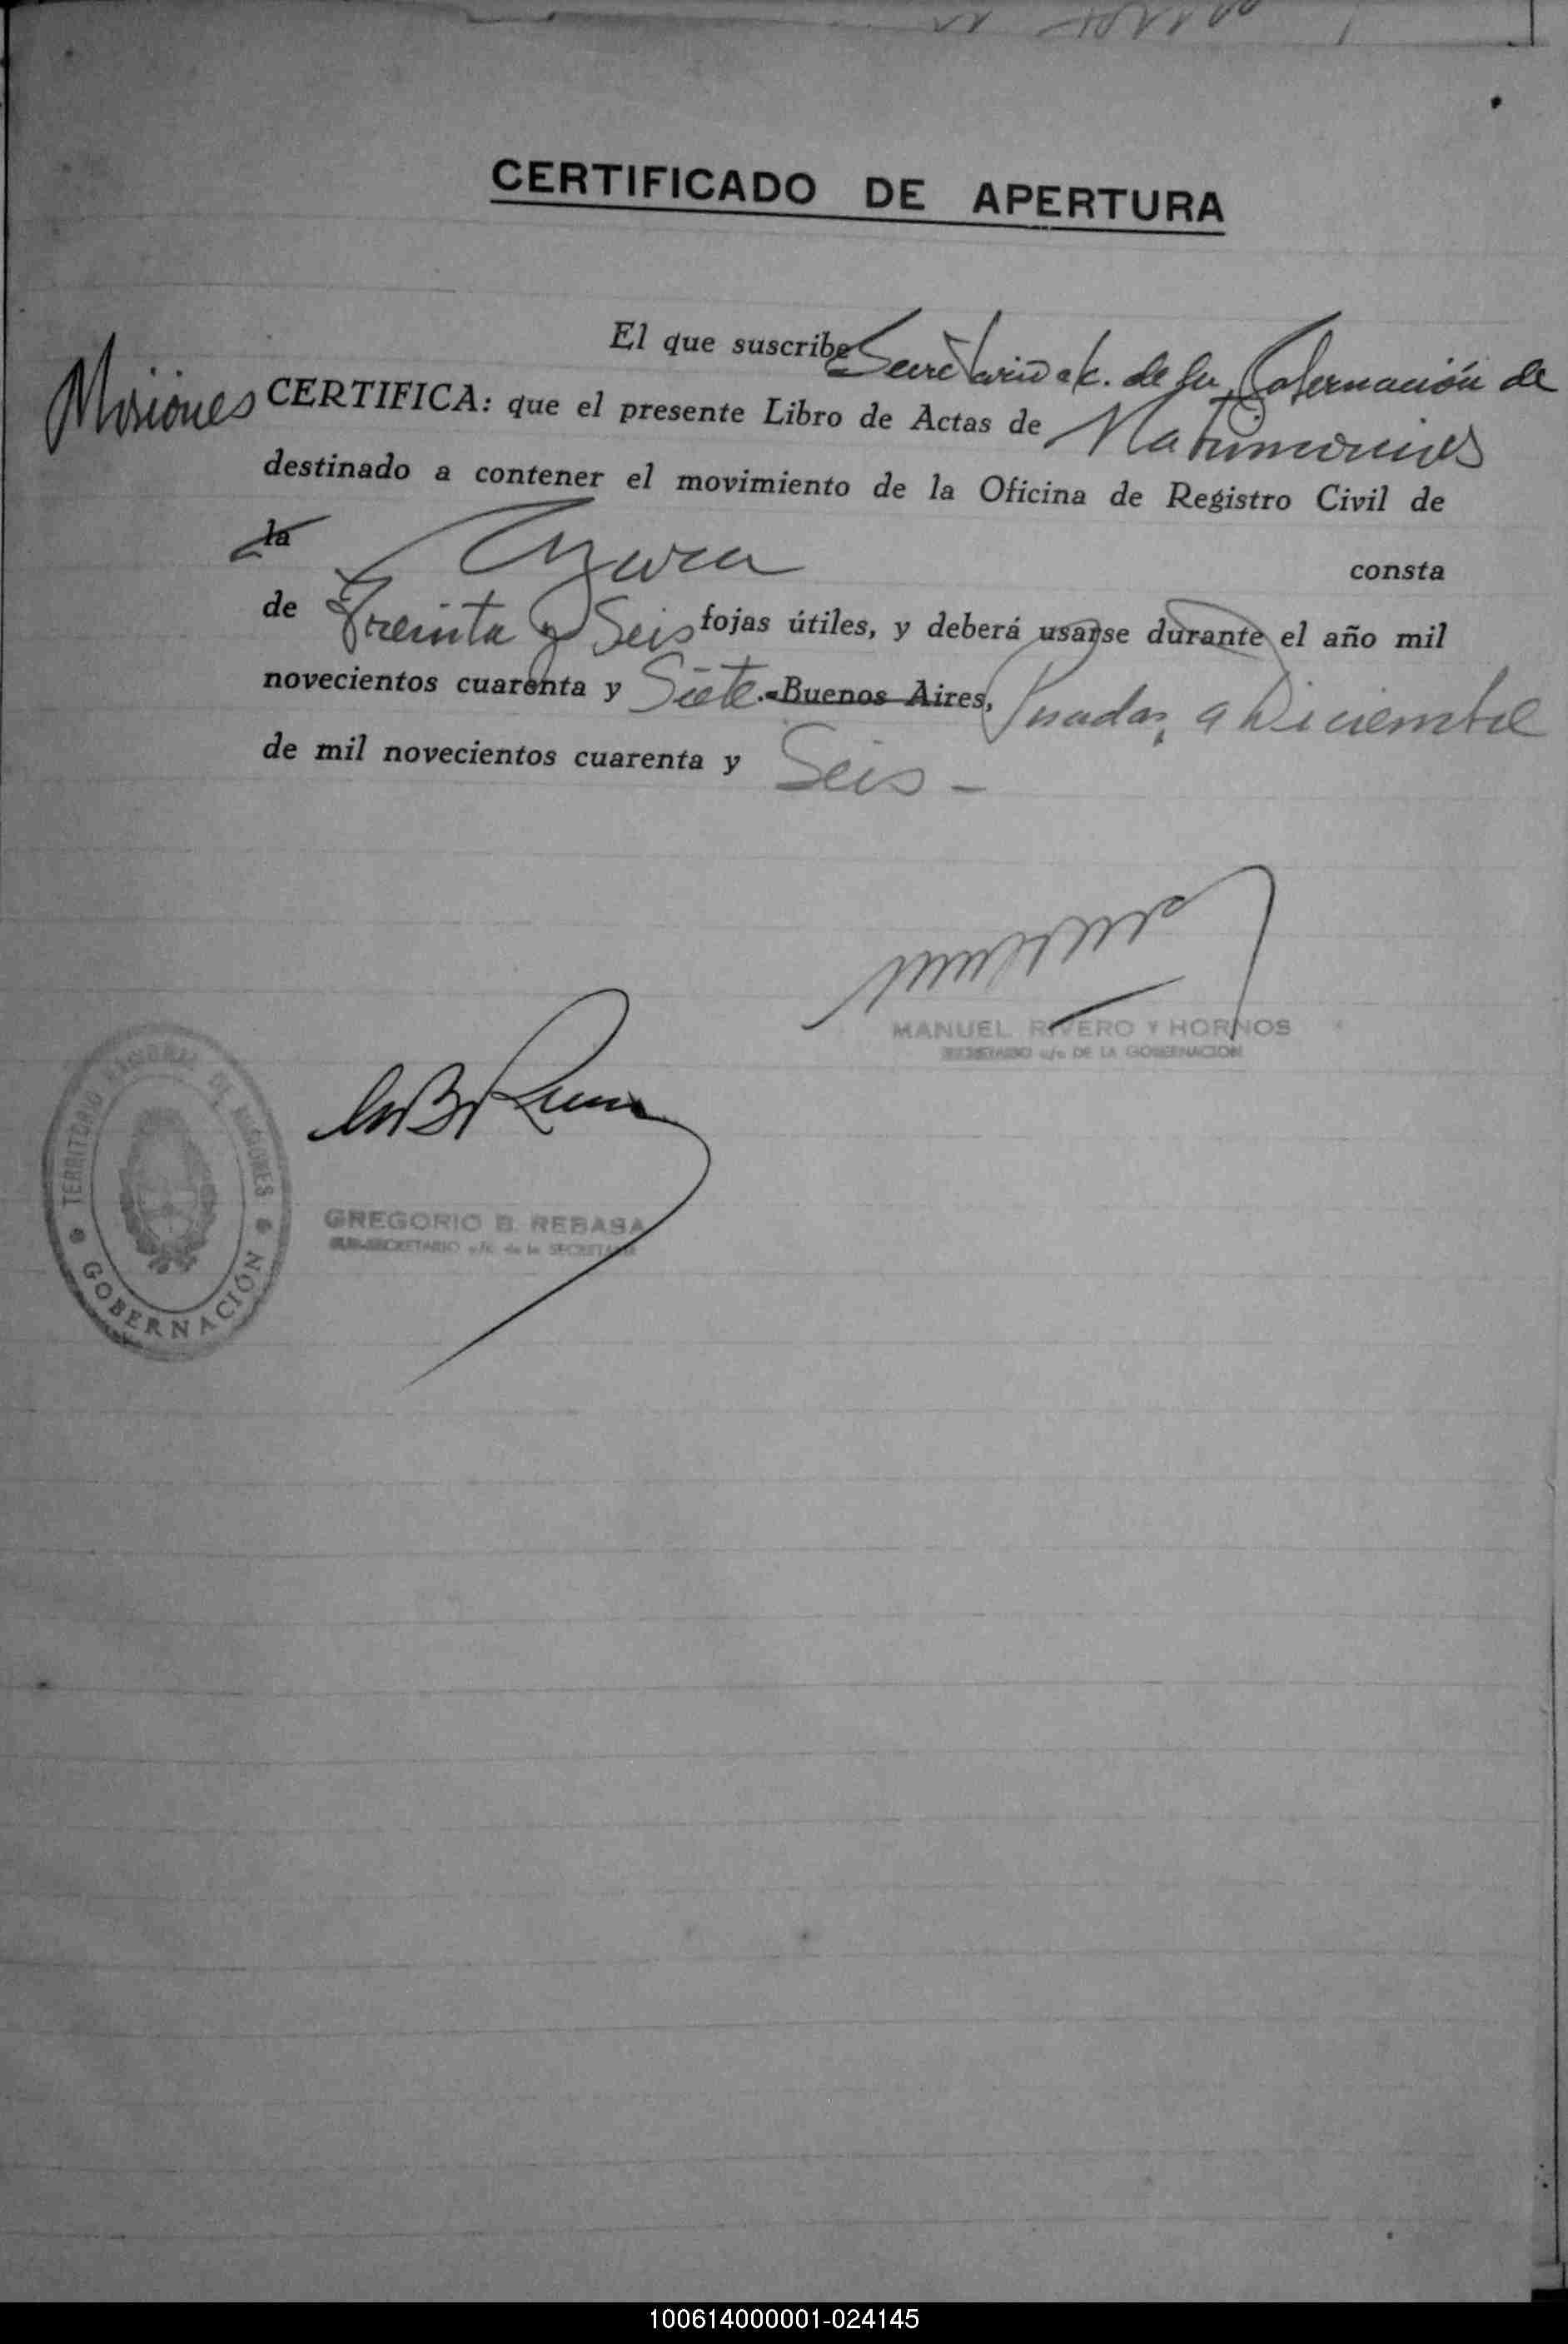 CERTIFICADO DE APERTURA
El que suscribe Secretario a/c. de la Gobernación de
Misiones CERTIFICA: que el presente Libro de Actas de Matrimonios
destinado a contener el movimiento de la Oficina de Registro Civil de
la Azara consta
de Treinta y Seis fojas útiles, y deberá usarse durante el año mil
novecientos cuarenta y Siete.-Buenos Aires, Posadas, 9 Diciembre
de mil novecientos cuarenta y Seis -
MANUEL RIVERO Y HORNOS
SECRETARIO a/c DE LA GOBERNACION
TERRITORIO NACIONAL DE MISIONES
GOBERNACIÓN
GREGORIO B. REBASA
SUB-SECRETARIO a/c de la SECRETARIA
100614000001-024145